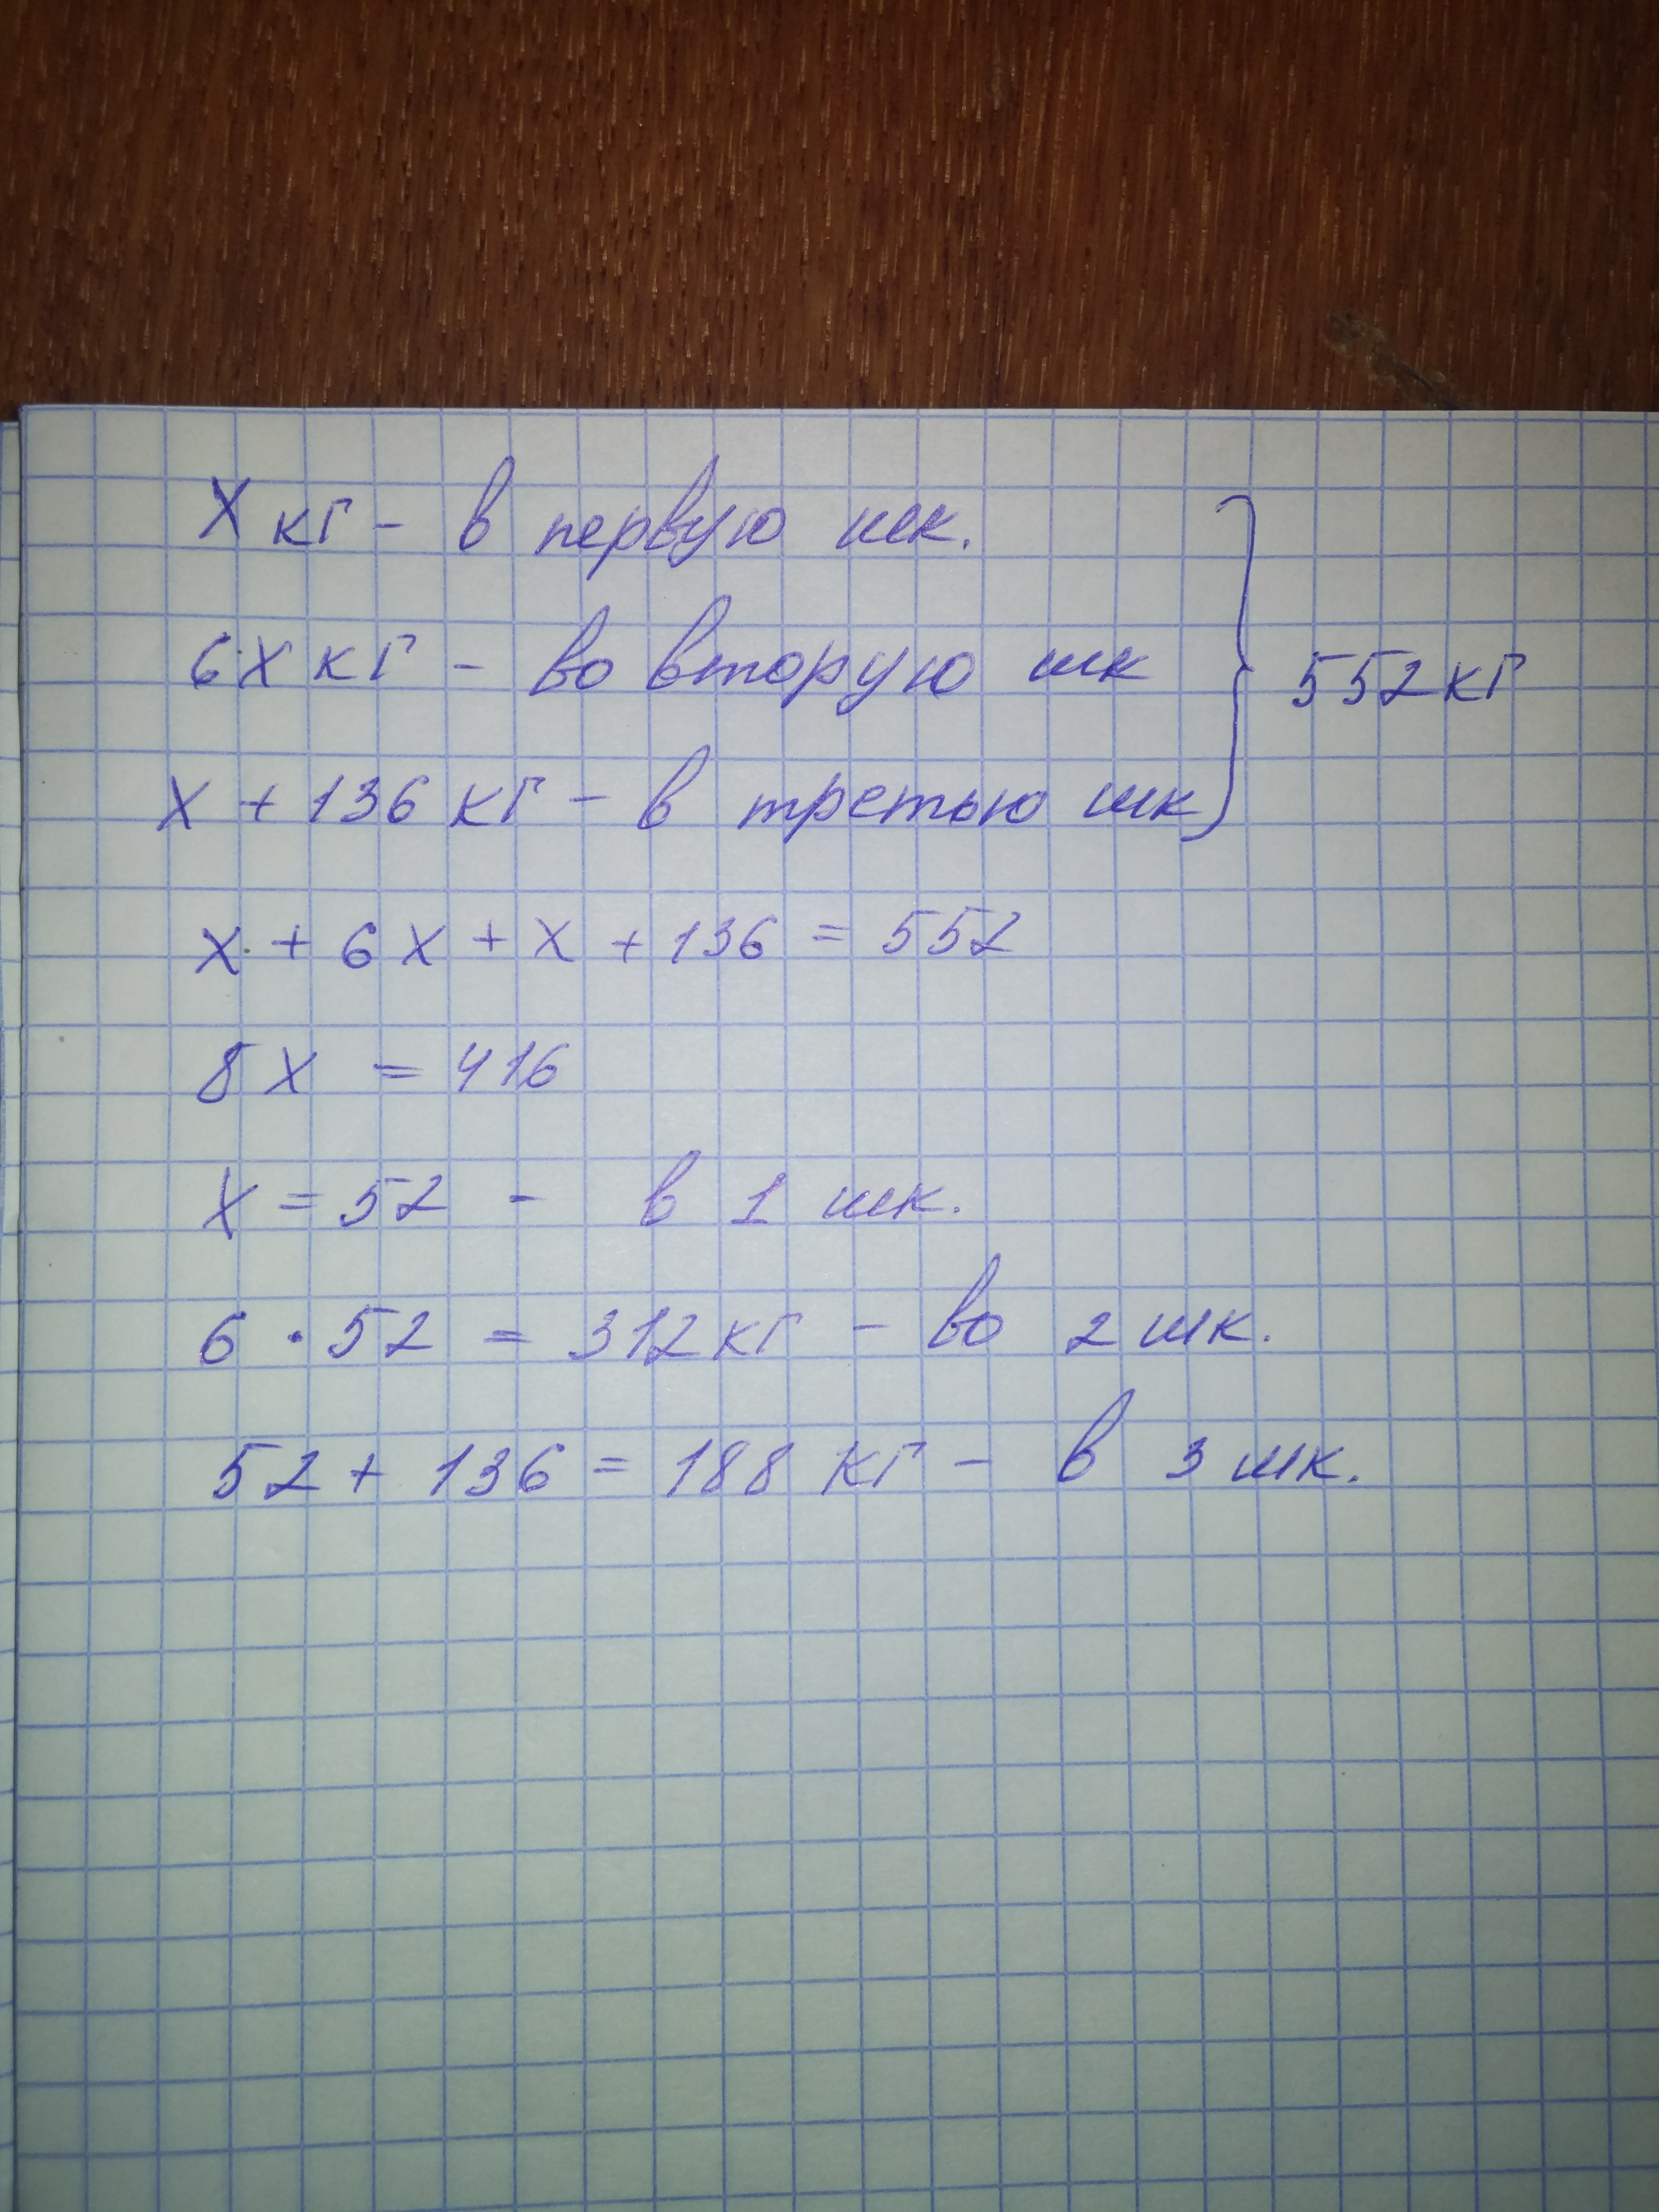 X кг - в первую шк.
6X кг - во вторую шк
552кг
X + 136 кг - в третью шк
X + 6X + X + 136 = 552
8X = 416
X = 52 - в 1 шк.
6 · 52 = 312кг - во 2 шк.
52 + 136 = 188 кг - в 3 шк.